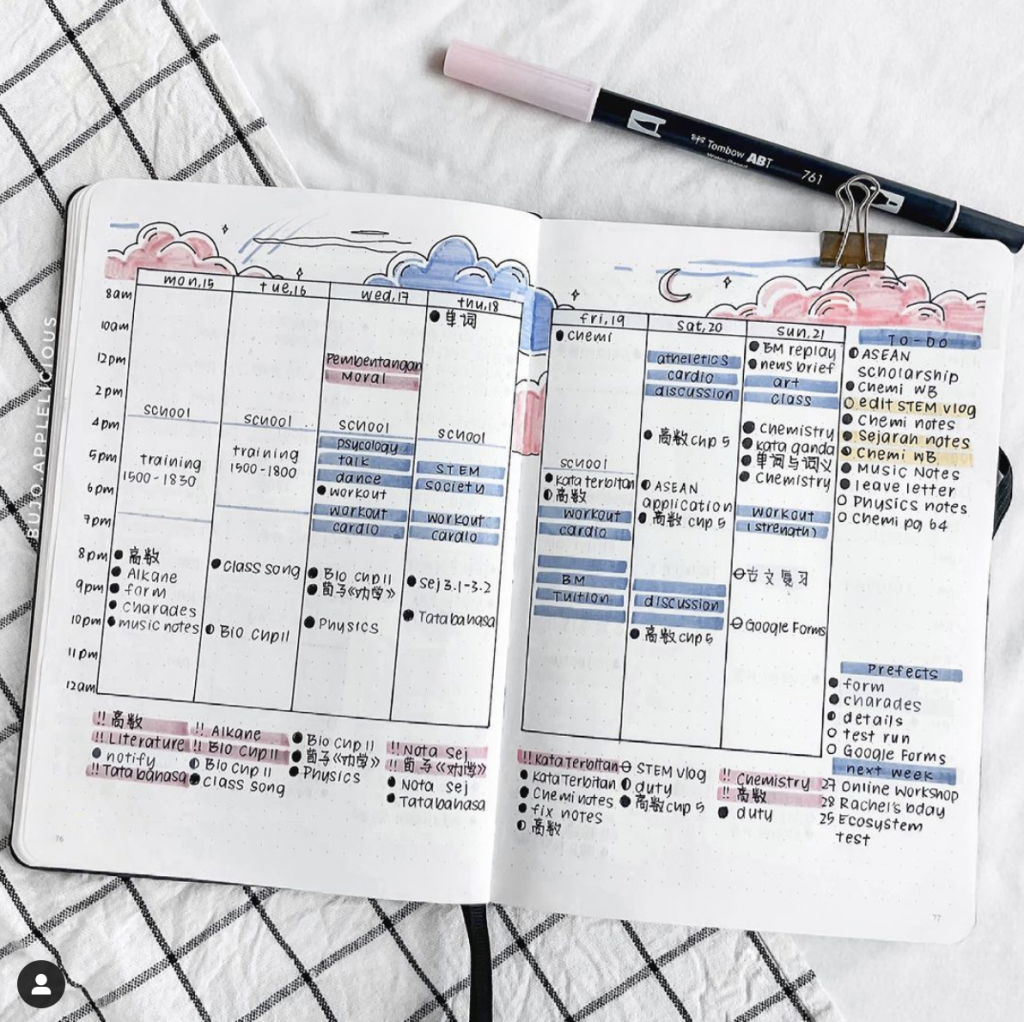 Tombow ABT
761
BUJO.APPLELICIOUS
mon,15
tue,16
wed,17
thu,18
8am
10am
12pm
2pm
4pm
5pm
6pm
7pm
8pm
9pm
10pm
11pm
12am
school
training
1500-1830
高数
Alkane
form
charades
music notes
school
training
1500-1800
class song
Bio chp11
Pembentangan
Moral
school
psycology
talk
dance
workout
workout
cardio
Bio chp11
荀子《劝学》
Physics
单词
school
STEM
society
workout
cardio
sej 3.1-3.2
Tatabahasa
!! 高数
!! Literature
notify
!! Tatabahasa
!! Alkane
!! Bio chp11
Bio chp11
class song
Bio chp11
荀子《劝学》
Physics
!! Nota sej
!! 荀子《劝学》
Nota sej
Tatabahasa
76
fri,19
sat,20
sun,21
chemi
school
kata terbitan
高数
workout
cardio
BM
Tuition
atheletics
cardio
discussion
高数 chp 5
ASEAN
application
高数 chp 5
discussion
高数 chp 5
BM replay
news brief
art
class
Chemistry
kata ganda
单词与词义
Chemistry
workout
(strength)
古文复习
Google Forms
TO-DO
ASEAN
scholarship
Chemi WB
edit STEM vlog
Chemi notes
Sejarah notes
Chemi WB
Music Notes
leave letter
Physics notes
Chemi pg 64
Prefects
form
charades
details
test run
Google Forms
next week
27 Online Workshop
28 Rachel's bday
25 Ecosystem
test
!! Kata Terbitan
Kata Terbitan
Chemi notes
fix notes
高数
STEM vlog
duty
高数 chp 5
!! Chemistry
!! 高数
duty
77